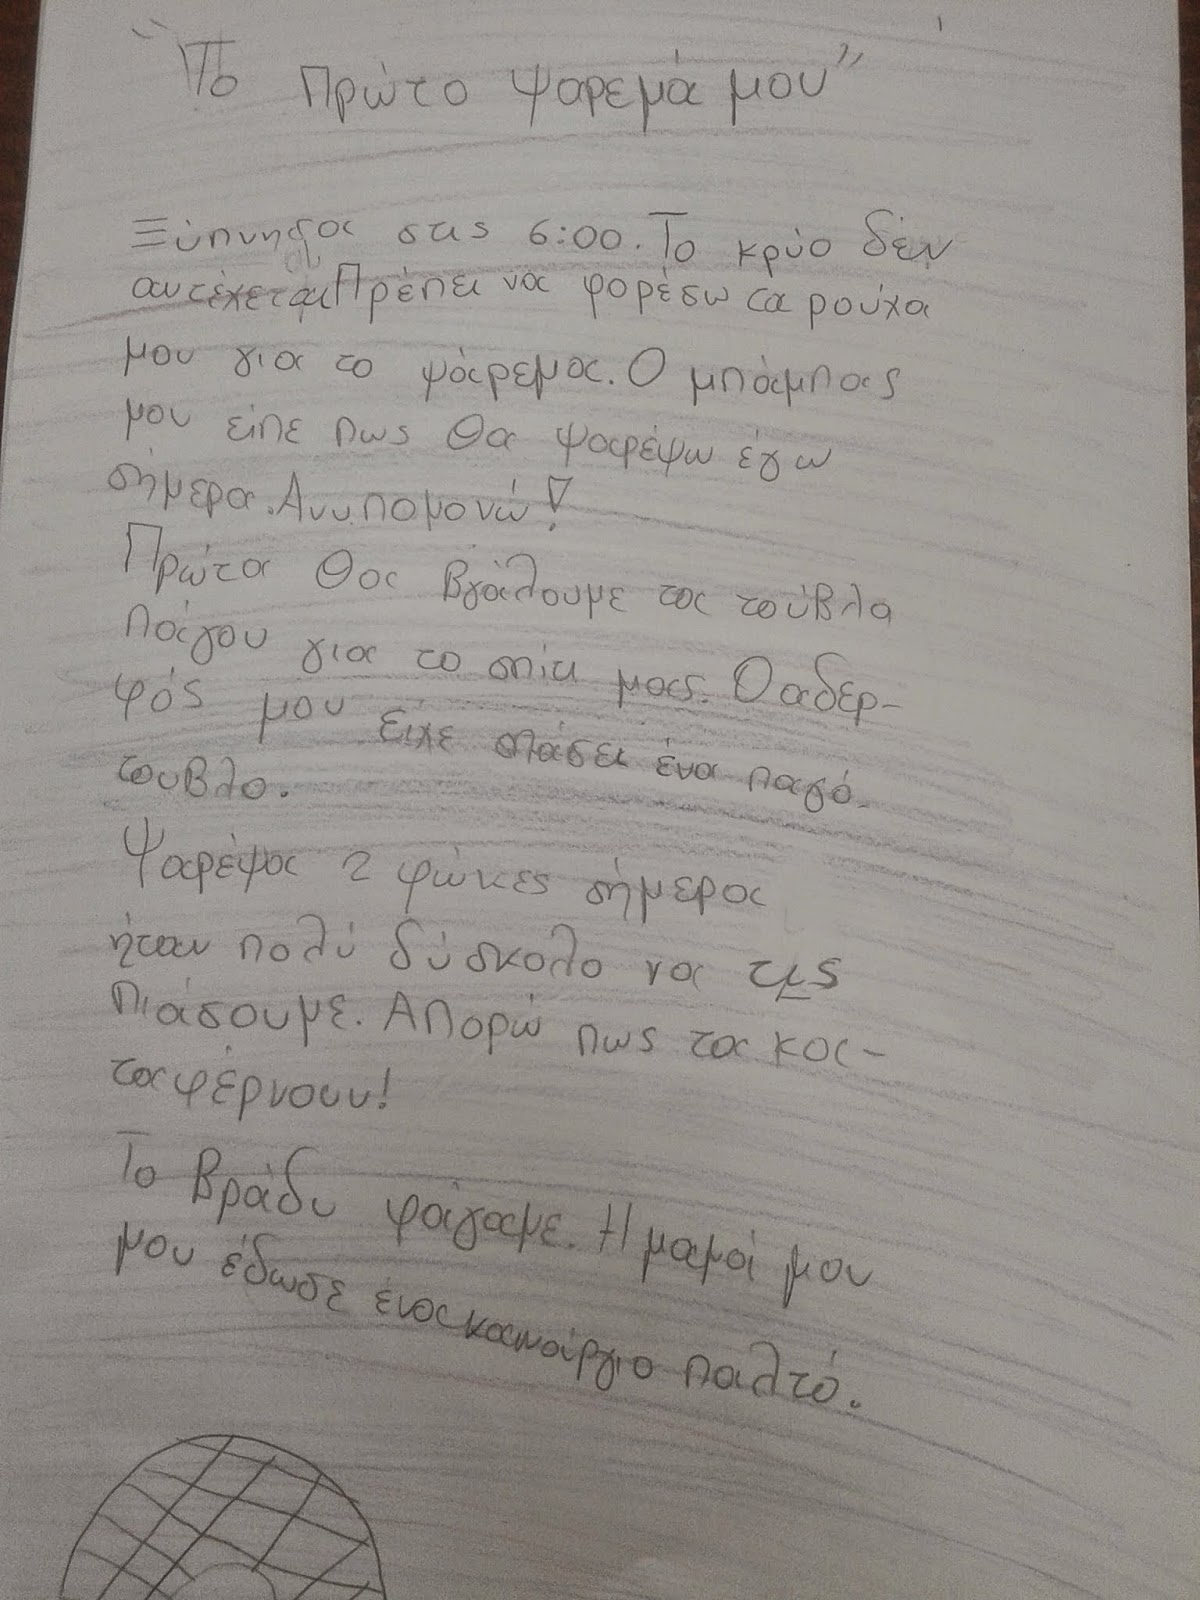 "Το πρώτο ψάρεμά μου"
Ξύπνησα στις 6:00. Το κρύο δεν
αντέχεται Πρέπει να φορέσω τα ρούχα
μου για το ψάρεμα. Ο μπάμπας
μου είπε πως θα ψαρέψω έγω
σήμερα. Ανυπομονώ!
Πρώτα θα βγάλουμε τα τούβλα
πάγου για το σπίτι μας. Ο αδερ-
φός μου είχε σπάσει ένα παγό-
τουβλο.
Ψαρέψα 2 φώκιες σήμερα
ήταν πολύ δύσκολο να τις
πιάσουμε. Απορώ πως τα κα-
ταφέρνουν!
Το βράδυ φάγαμε. Η μαμά μου
μου έδωσε ένα καινούργιο παλτό.